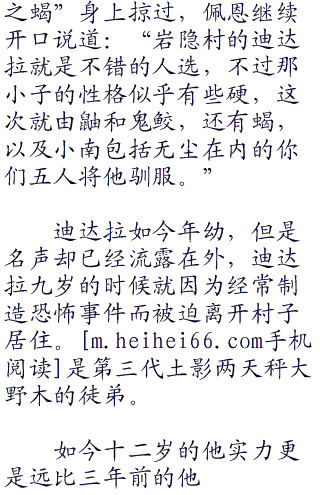 之蝎”身上掠过，佩恩继续
开口说道：“岩隐村的迪达
拉就是不错的人选，不过那
小子的性格似乎有些硬，这
次就由鼬和鬼鲛，还有蝎，
以及小南包括无尘在内的你
们五人将他驯服。”
迪达拉如今年幼，但是
名声却已经流露在外，迪达
拉九岁的时候就因为经常制
造恐怖事件而被迫离开村子
居住。[m.heihei66.com手机
阅读]是第三代土影两天秤大
野木的徒弟。
如今十二岁的他实力更
是远比三年前的他